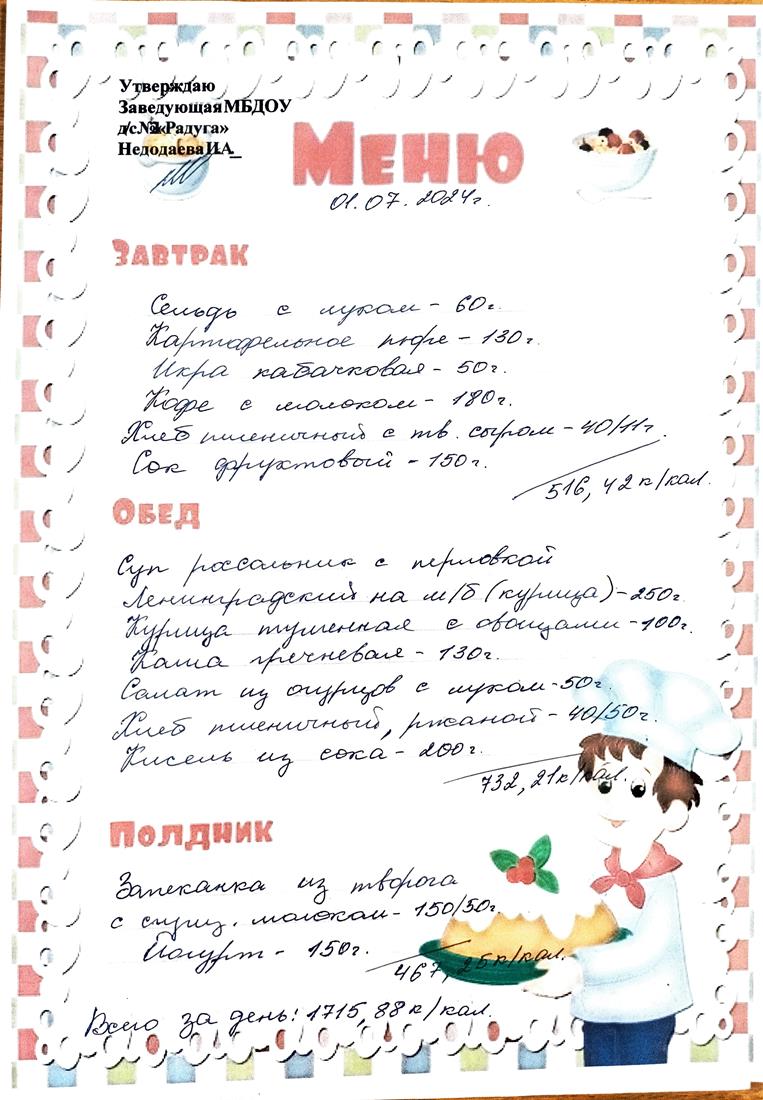 Утверждаю
Заведующая МБДОУ
д/с№3«Радуга»
Недодаева И.А_
Меню
01.07.2024г.
Завтрак
Сельдь с луком - 60г.
Картофельное пюре - 130г.
Икра кабачковая - 50г.
Кофе с молоком - 180г.
Хлеб пшеничный с тв. сыром - 40/11г.
Сок фруктовый - 150г.
516,42 к/кал.
Обед
Суп рассольник с перловкой
Ленинградский на м/б (курица) - 250г.
Курица тушенная с овощами - 100г.
Каша гречневая - 130г.
Салат из огурцов с луком - 50г.
Хлеб пшеничный, ржаной - 40/50г.
Кисель из сока - 200г.
732,21к/кал.
Полдник
Запеканка из творога
с сгущ. молоком - 150/50г.
Йогурт - 150г.
467,25к/кал.
Всего за день: 1715,88 к/кал.